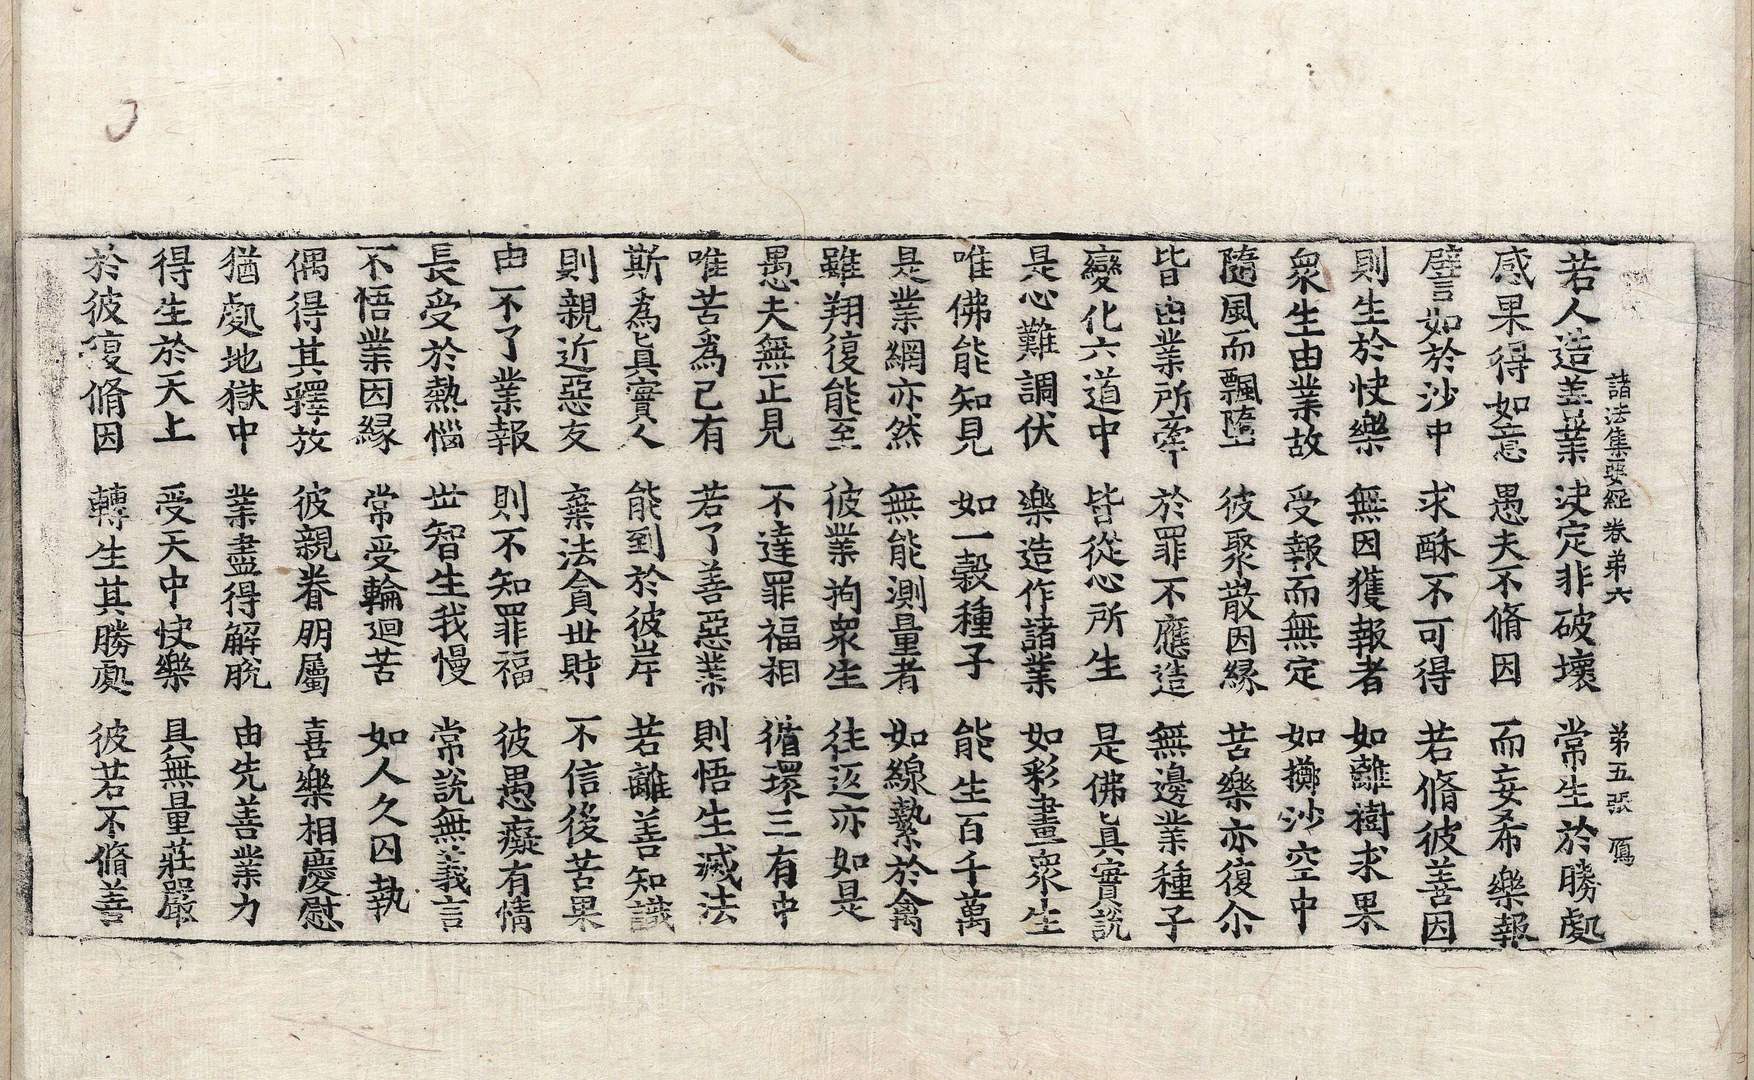 諸法集要經卷苐六 苐五張 鴈
若人造善業 決定非破壞 常生於勝處
感果得如意 愚夫不脩因 而妄希樂報
譬如於沙中 求酥不可得 若脩彼善因
則生於快樂 無因獲報者 如離樹求果
衆生由業故 受報而無定 如擲沙空中
隨風而飄墮 彼聚散因緣 苦樂亦復尒
皆由業所牽 於罪不應造 無邊業種子
變化六道中 皆從心所生 是佛眞實說
是心難調伏 樂造作諸業 如彩畫衆生
唯佛能知見 如一穀種子 能生百千萬
是業網亦然 無能測量者 如線繫於禽
雖翔復能至 彼業拘衆生 往返亦如是
愚夫無正見 不達罪福相 循環三有中
唯苦爲己有 若了善惡業 則悟生滅法
斯爲眞實人 能到於彼岸 若離善知識
則親近惡友 棄法貪世財 不信後苦果
由不了業報 則不知罪福 彼愚癡有情
長受於熱惱 世智生我慢 常說無義言
不悟業因緣 常受輪迴苦 如人久囚執
偶得其釋放 彼親眷朋屬 喜樂相慶慰
猶處地獄中 業盡得解脫 由先善業力
得生於天上 受天中快樂 具無量莊嚴
於彼復脩因 轉生其勝處 彼若不脩善